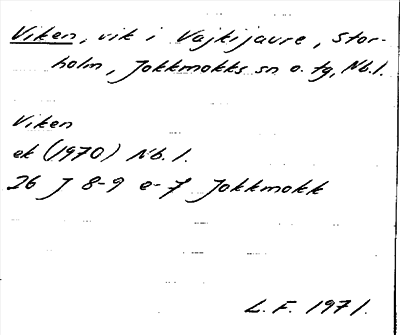 Viken, vik i Vajkijaure, Stor-
holm, Jokkmokks sn o. tg, Nb.l.
Viken
ek (1970) Nb. l.
26 J 8-9 e-f Jokkmokk
L. F. 1971.